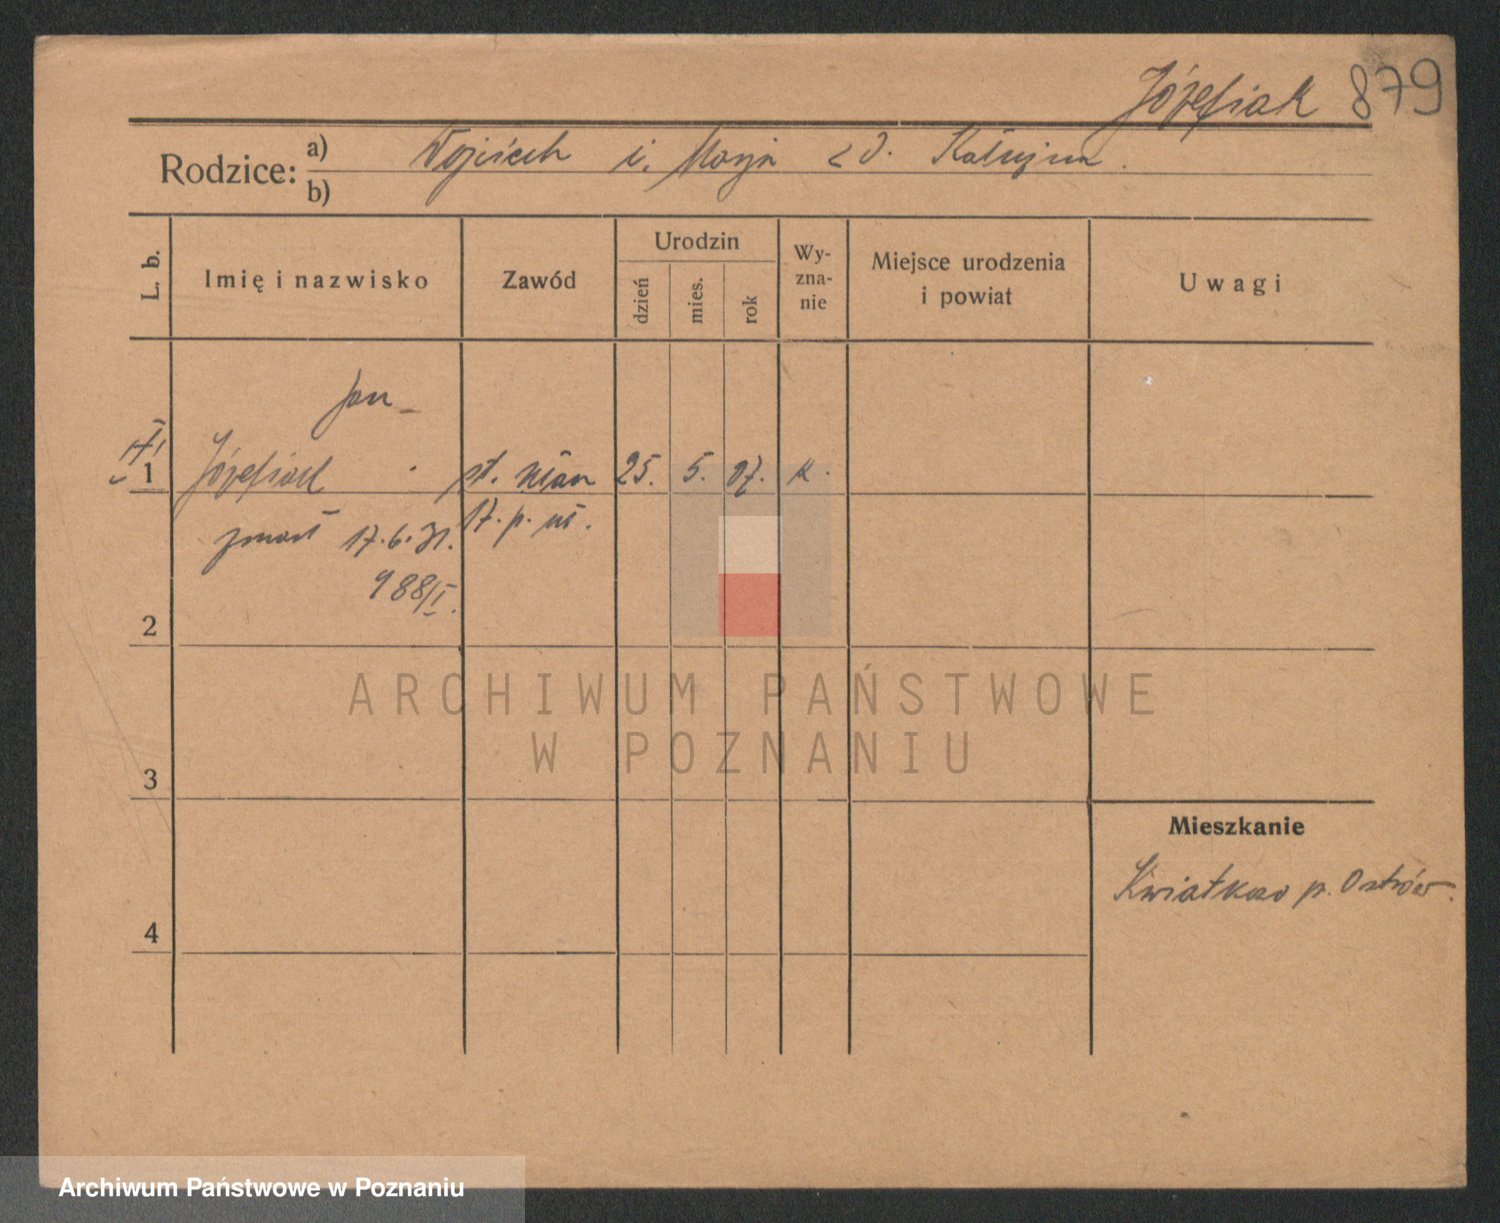 Józefiak 879
Rodzice: a) Wojciech i Marja z d.
b)
L. b.
Imię i nazwisko
Zawód
Urodzin
dzień
mies.
rok
Wy-
zna-
nie
Miejsce urodzenia
i powiat
Uwagi
Jan
1 Józefiak st. ułan 25. 5. 07. k.
17. p. uł.
zmarł 17.6.31.
988/I.
2
3
4
Mieszkanie
Kwiatków p. Ostrów.
ARCHIWUM PAŃSTWOWE
W POZNANIU
Archiwum Państwowe w Poznaniu